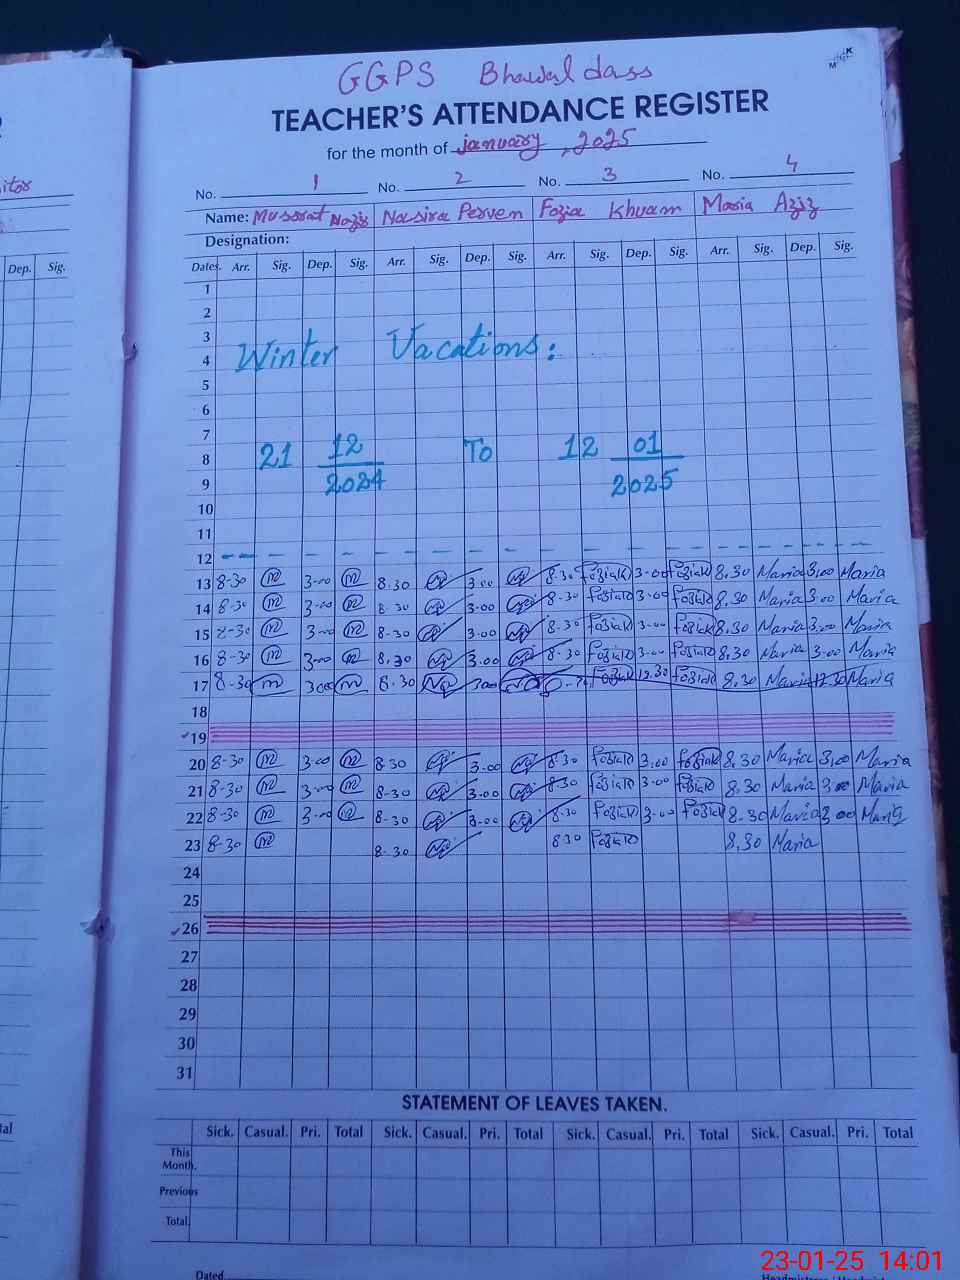 GGPS Bhawal dass
M K
TEACHER'S ATTENDANCE REGISTER
for the month of january, 2025
itor
No. 1 No. 2 No. 3 No. 4
Name: Mussrat Nazir Nasira Perven Fozia Khuam Maria Aziz
Designation:
Dep. Sig.
Dates. Arr. Sig. Dep. Sig. Arr. Sig. Dep. Sig. Arr. Sig. Dep. Sig. Arr. Sig. Dep. Sig.
1
2
3
4 Winter Vacations:
5
6
7
8 21 12 To 12 01
9 2024 2025
10
11
12
13 8-30 m 3-00 m 8.30 3.00 8-30 Foziak 3-00 Foziak 8.30 Maria 3.00 Maria
14 8-30 m 3-00 m 8 30 3.00 8-30 Foziak 3-00 Foziak 8.30 Maria 3.00 Maria
15 8-30 m 3-00 m 8-30 3.00 8-30 Foziak 3-00 Foziak 8.30 Maria 3.00 Maria
16 8-30 m 3-00 m 8.30 3.00 8-30 Foziak 3-00 Foziak 8.30 Maria 3-00 Maria
17 8-30 m 300 m 8.30 300 Foziak 12.30 Foziak 8.30 Maria 12.30 Maria
18
19
20 8-30 m 3-00 m 8.30 3.00 8-30 Foziak 3.00 Foziak 8.30 Maria 3.00 Maria
21 8-30 m 3-00 m 8-30 3.00 8-30 Foziak 3-00 Foziak 8.30 Maria 3 00 Maria
22 8-30 m 3-00 m 8-30 3-00 8-30 Foziak 3-00 Foziak 8-30 Maria 3 00 Maria
23 8-30 m 8-30 8 30 Foziak 8.30 Maria
24
25
26
27
28
29
30
31
STATEMENT OF LEAVES TAKEN.
Sick. Casual. Pri. Total Sick. Casual. Pri. Total Sick. Casual. Pri. Total Sick. Casual. Pri. Total
This
Month.
Previous
Total.
Dated
23-01-25 14:01